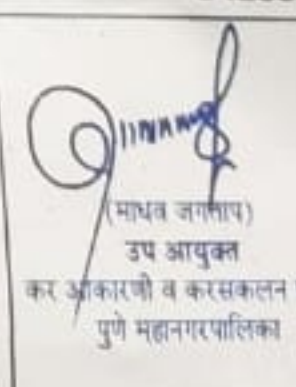 (माधव जगताप)
उप आयुक्त
कर आकारणी व करसंकलन
पुणे महानगरपालिका